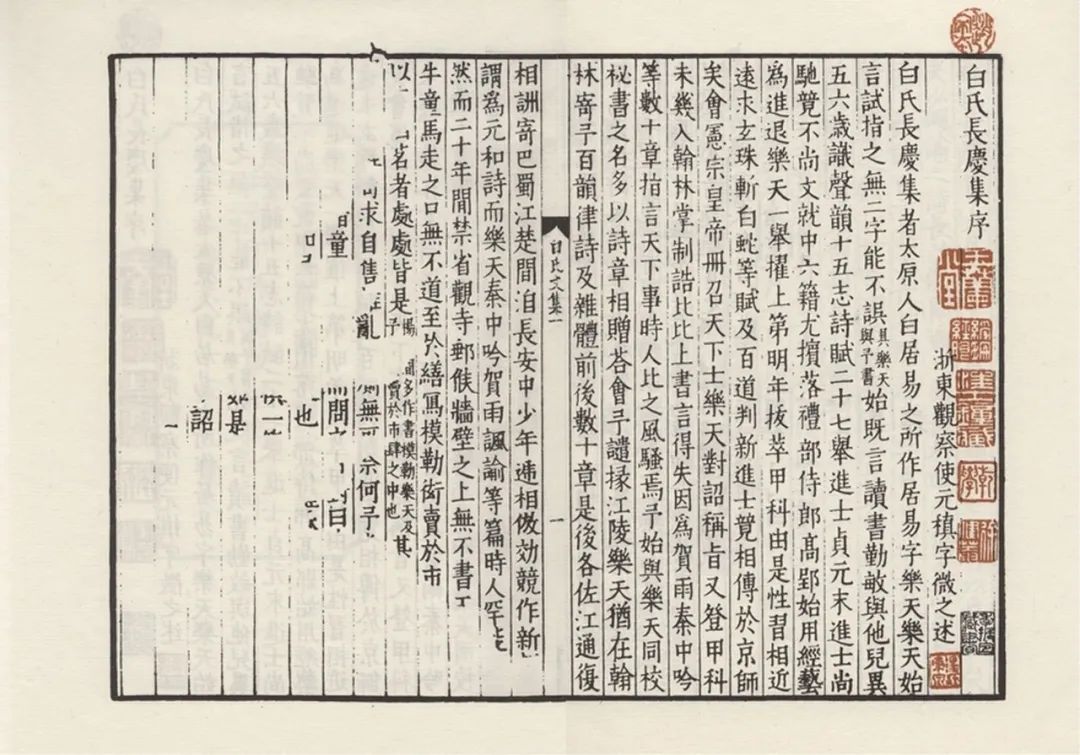 白氏長慶集序
浙東觀察使元稹字微之述
白氏長慶集者太原人白居易之所作居易字樂天樂天始
言試指之無二字能不誤具樂天與予書始既言讀書勤敏與他兒異
五六歲識聲韻十五志詩賦二十七舉進士貞元末進士尚
馳競不尚文就中六籍尤擯落禮部侍郎高郢始用經藝
爲進退樂天一舉擢上第明年拔萃甲科由是性習相近
遠求玄珠斬白蛇等賦及百道判新進士競相傳於京師
矣會憲宗皇帝冊召天下士樂天對詔稱旨又登甲科
未幾入翰林掌制誥比比上書言得失因爲賀雨秦中吟
等數十章指言天下事時人比之風騷焉予始與樂天同校
祕書之名多以詩章相贈荅會予譴掾江陵樂天猶在翰
林寄予百韻律詩及雜體前後數十章是後各佐江通復
白氏文集一
一
相詶寄巴蜀江楚間洎長安中少年遞相倣効競作新
謂爲元和詩而樂天秦中吟賀雨諷諭等篇時人罕
然而二十年間禁省觀寺郵候牆壁之上無不書
牛童馬走之口無不道至於繕寫模勒衒賣於市
以茗者處處皆是揚予多作書模勒樂天及其賣於市肆之中也
求自售亂無何予
童問
也
詔